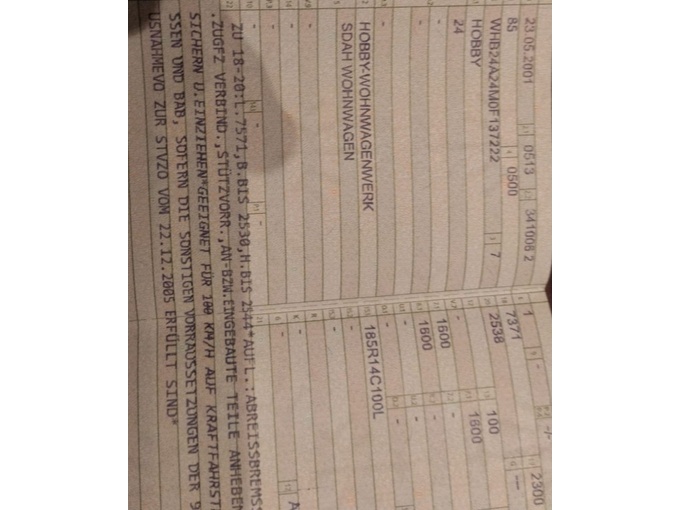 23.05.2001 2.1 0513 2.2 341008 2
85 4 0500
WHB24A24M0F137222 3 7
HOBBY
24
-
-
HOBBY-WOHNWAGENWERK
SDAH WOHNWAGEN
-
-
1 9 - -/-
7371 2300
2538 100 ---
- 1600
1600 -
1600 -
- -
185R14C100L
-
-
-
-
ZU 18-20:L.7571,B.BIS 2530,H.BIS 2544*AUFL.:ABREISSBREMSS
.ZUGFZ VERBIND.,STÜTZVORR.,AN-BZW.EINGEBAUTE TEILE ANHEBEN
SICHERN U.EINZIEHEN*GEEIGNET FÜR 100 KM/H AUF KRAFTFAHRST
SSEN UND BAB, SOFERN DIE SONSTIGEN VORRAUSSETZUNGEN DER 9
USNAHMEVO ZUR STVZO VOM 22.12.2005 ERFÜLLT SIND*